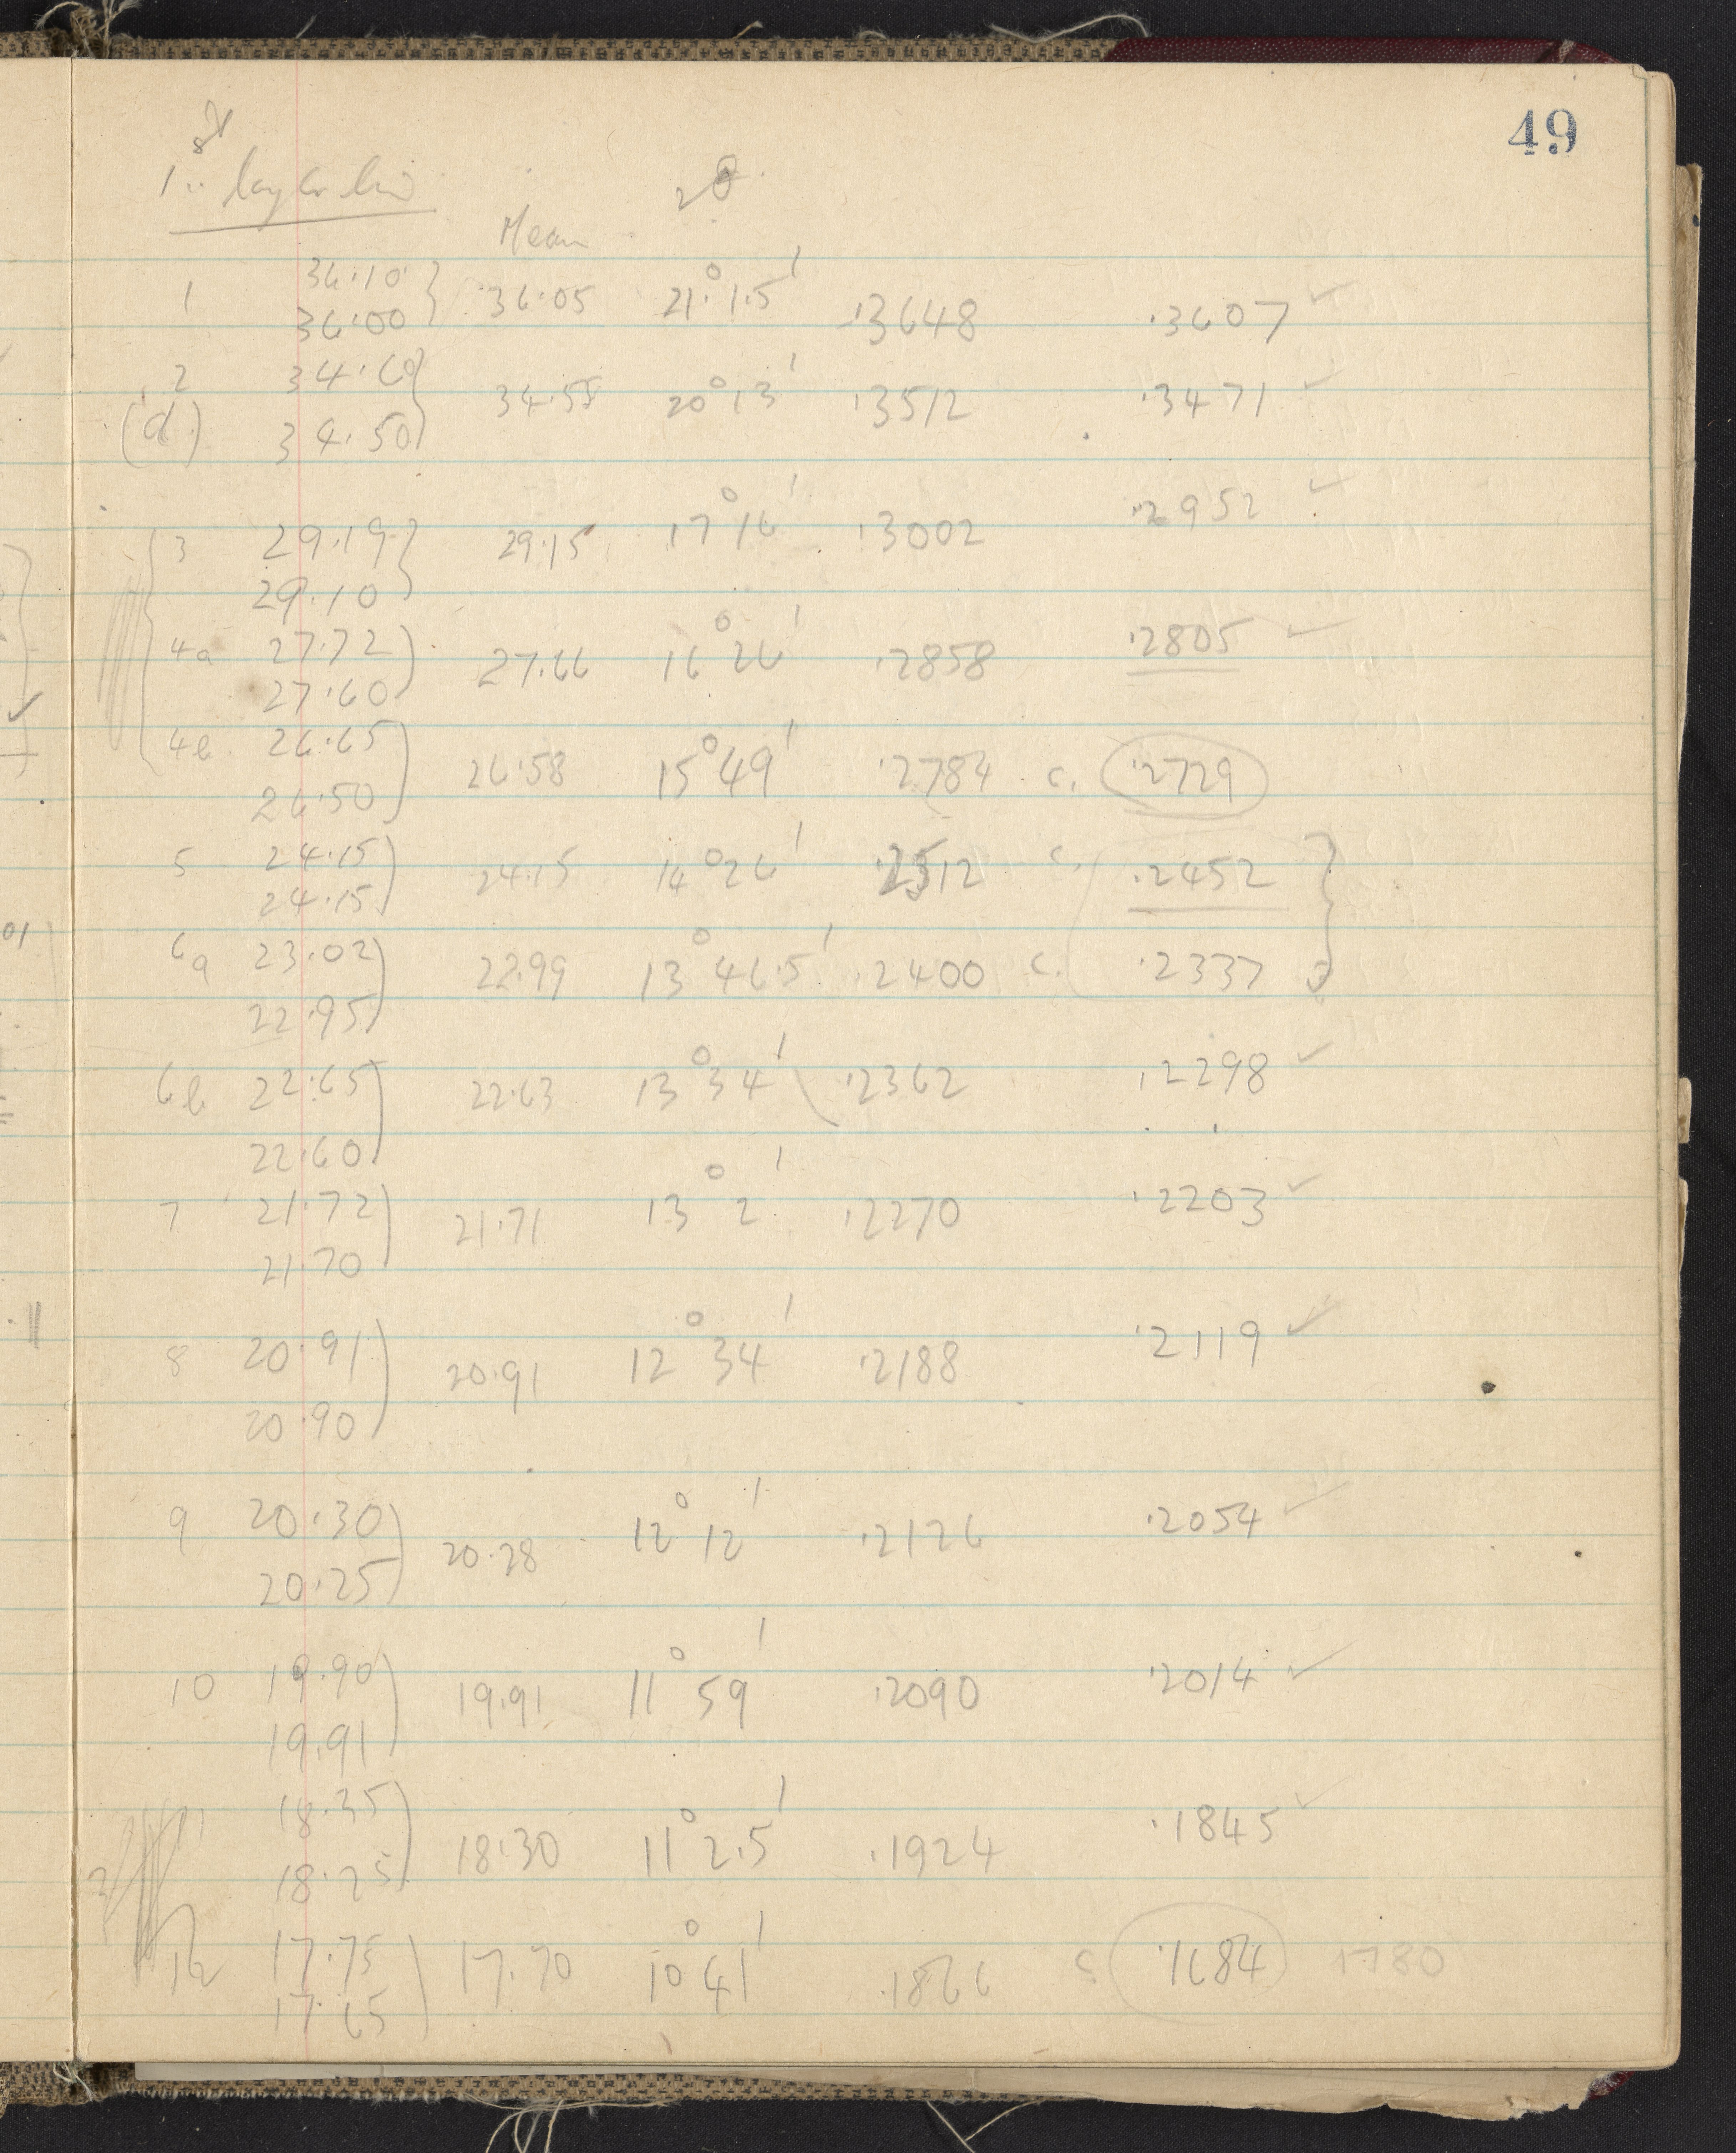 49
1st layer line
Mean 2θ
1 36.10 } 36.05 21° 1.5' .3648 .3607 ✓
36.00
2 34.60 } 34.55 20° 13' .3512 .3471 ✓
(d) 34.50
3 29.19 } 29.15 17° 16' .3002 .2952 ✓
29.10
4a 27.72 } 27.66 16° 26' .2858 .2805 ✓
27.60
4b 26.65 } 26.58 15° 49' .2784 c. .2729
26.50
5 24.15 } 24.15 14° 26' .2512 c. .2452 }
24.15
6a 23.02 } 22.99 13° 46.5' .2400 c. .2337
22.95
6b 22.65 } 22.63 13° 34' .2362 .2298 ✓
22.60
7 21.72 } 21.71 13° 2' .2270 .2203 ✓
21.70
8 20.91 } 20.91 12° 34' .2188 .2119 ✓
20.90
9 20.30 } 20.28 12° 12' .2126 .2054 ✓
20.25
10 19.90 } 19.91 11° 59' .2090 .2014 ✓
19.91
18.35 } 18.30 11° 2.5' .1924 .1845 ✓
18.25
12 17.75 } 17.70 10° 41' .1866 c. .1684 1780
17.65